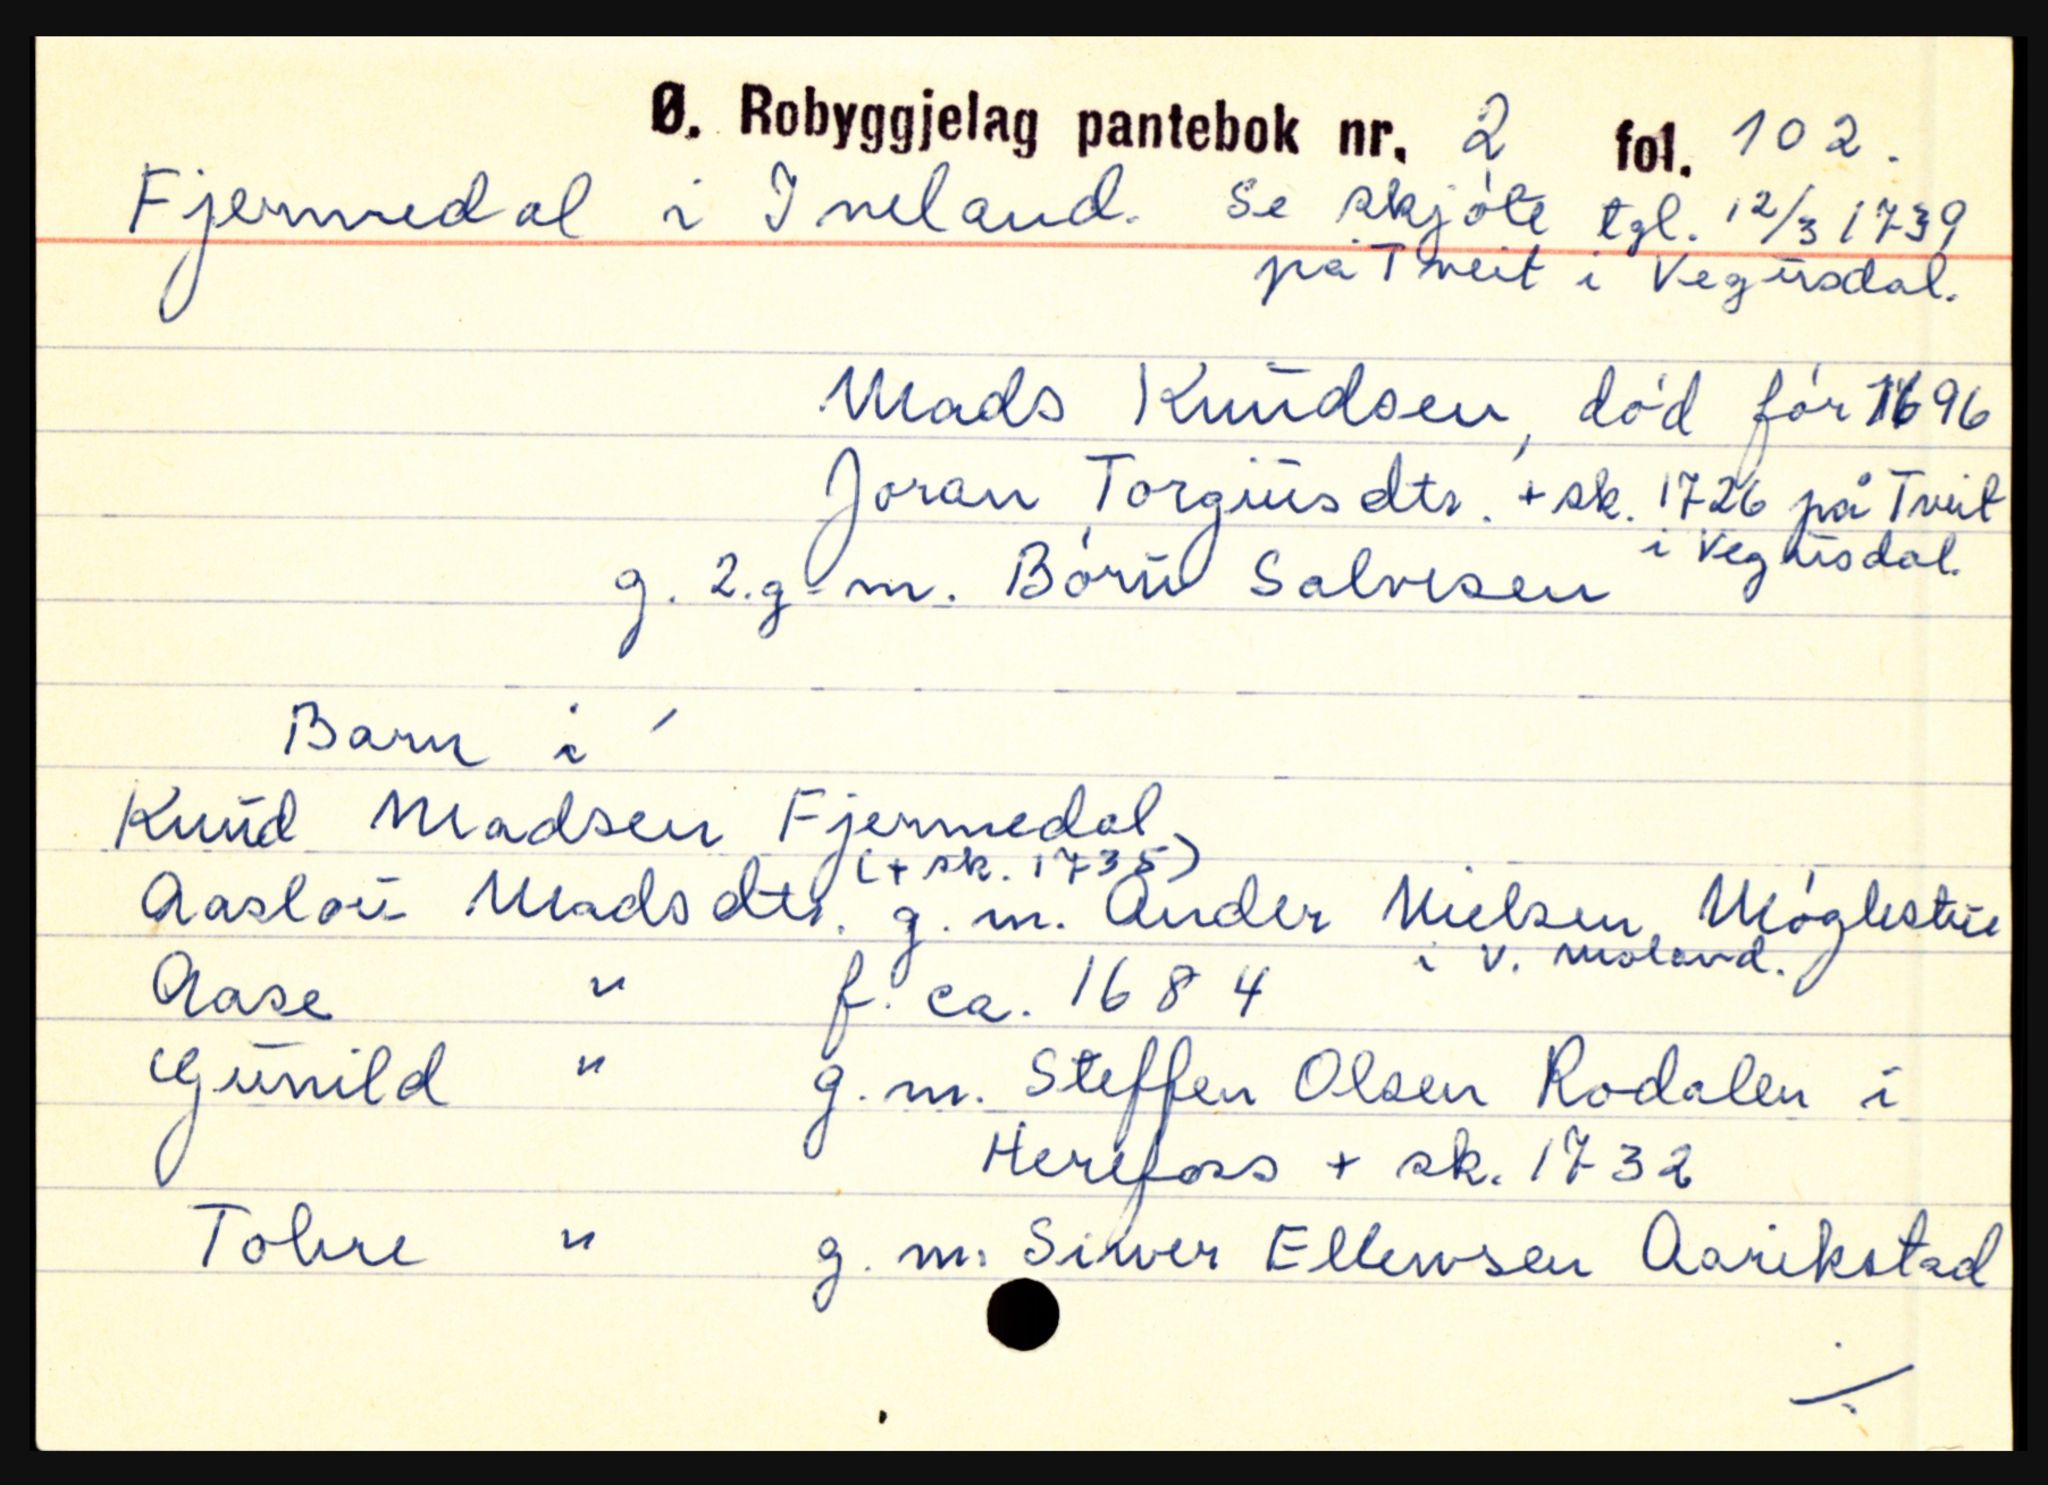 Ø. Robyggjelag pantebok nr. 2 fol. 102.
Fjermedal i Iveland. Se skjøte tgl. 12/3 1739
på Tveit i Vegusdal.
Mads Knudsen, død før 1696
Joran Torgiusdtr. + sk. 1726 på Tveit
i Vegusdal.
g. 2.g m. Børu Salvesen
Barn i
Knud Madsen Fjermedal
(+ sk. 1735)
Aaslou Madsdtr. g. m. Ander Nielsen Møglestue
i V. Moland.
Aase " f. ca. 1684
Gunild " g. m. Steffen Olsen Rodalen i
Herefoss + sk. 1732
Tolvre " g. m. Siwer Ellewsen Aarikstad